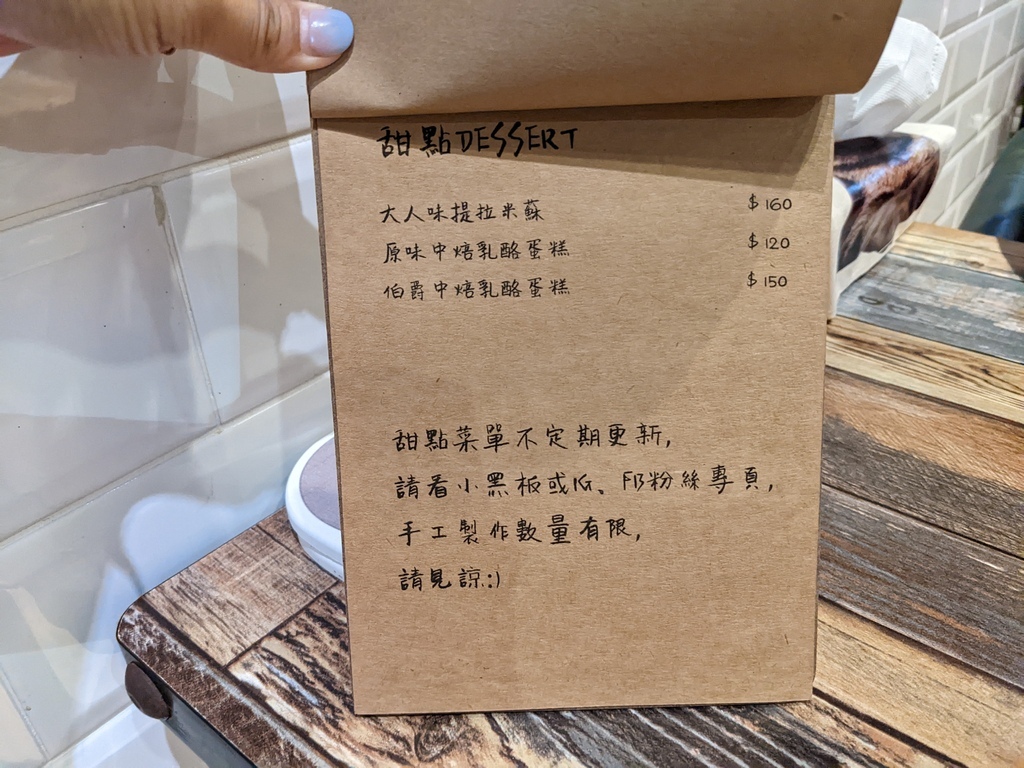 甜點DESSERT
大人味提拉米蘇 $160
原味中焙乳酪蛋糕 $120
伯爵中焙乳酪蛋糕 $150
甜點菜單不定期更新,
請看小黑板或IG、FB粉絲專頁,
手工製作數量有限,
請見諒:)